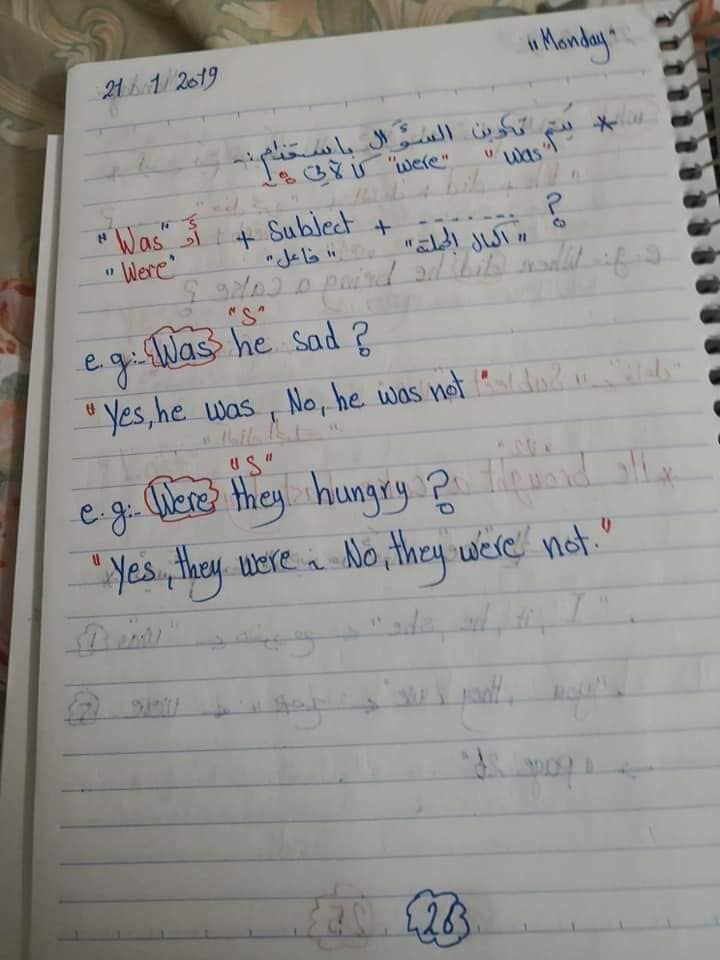 21 1 2019 "Monday"
* يتم تكوين السؤال باستخدام:-
"was" "were" كالآتي:-
"Was" أو "Were" + Subject + ........ ?
"فاعل" "اكمال الجملة"
"S"
e.g:- Was he sad?
"Yes, he was, No, he was not"
"S"
e.g:- Were they hungry?
"Yes, they were ~ No, they were not."
26